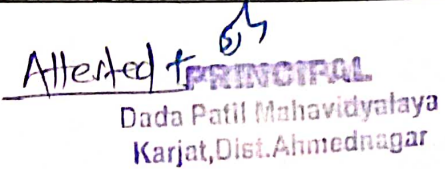 Attested
PRINCIPAL
Dada Patil Mahavidyalaya
Karjat,Dist.Ahmednagar